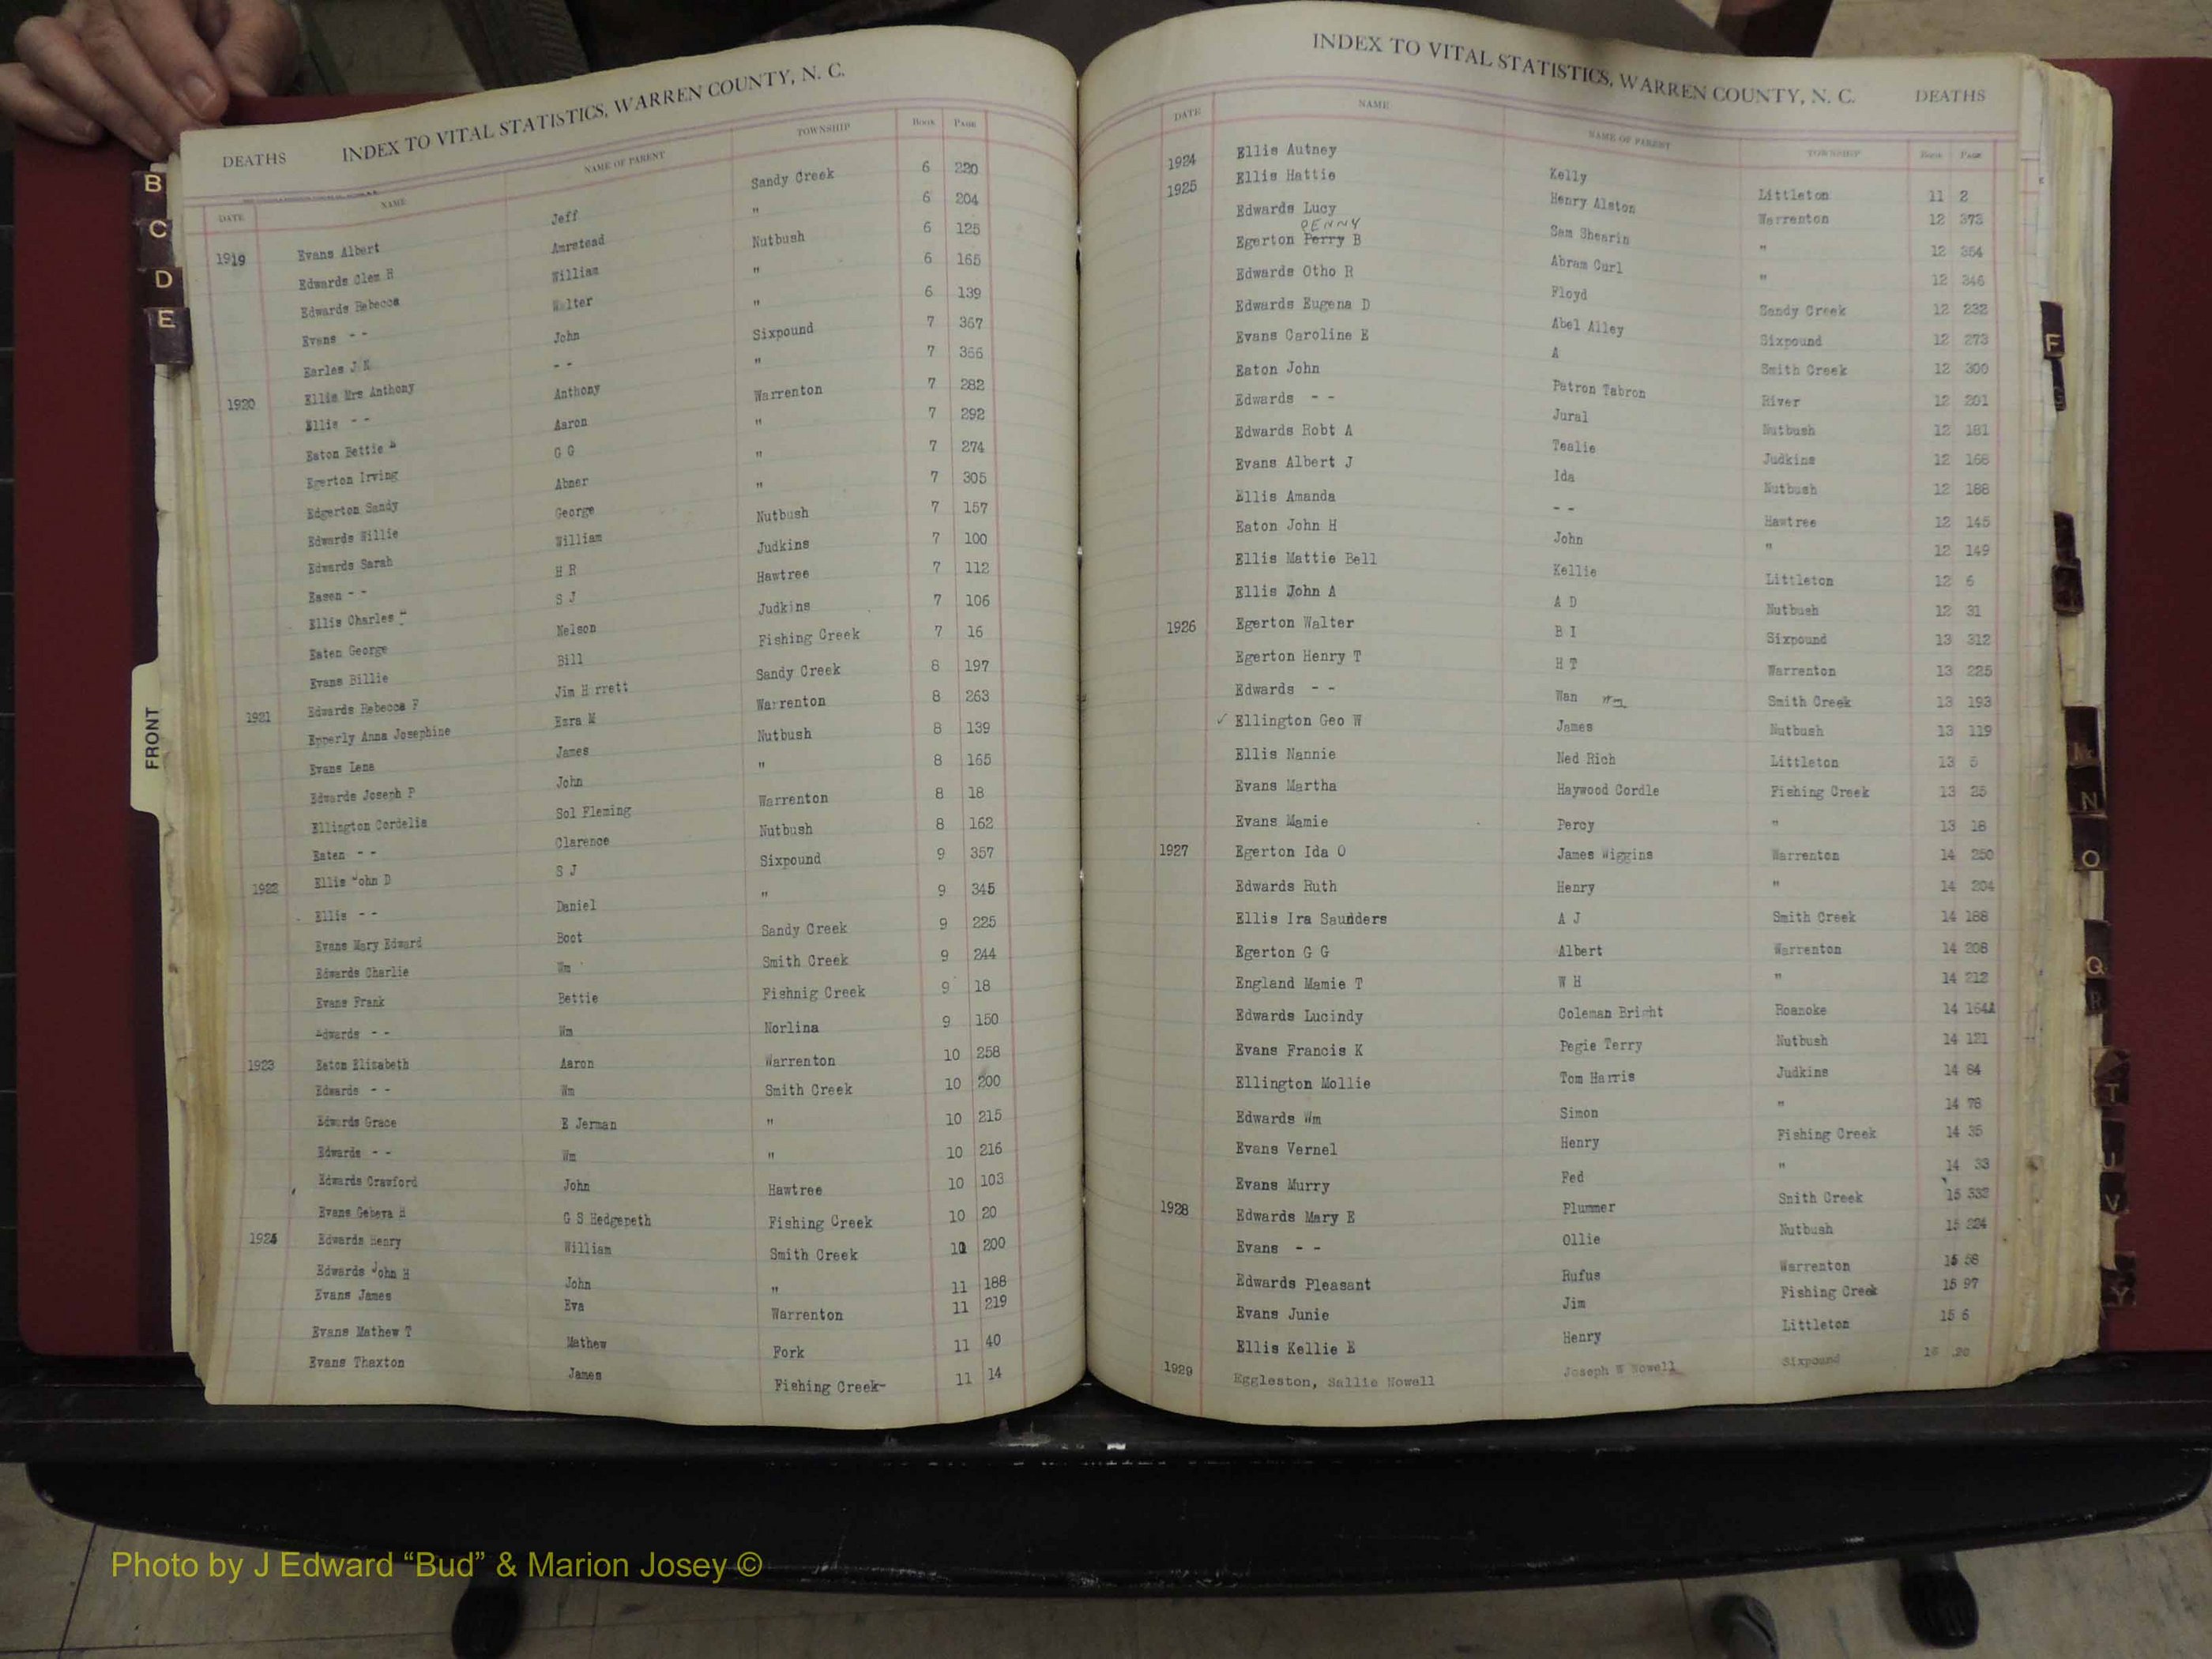 DEATHS INDEX TO VITAL STATISTICS, WARREN COUNTY, N. C.
DATE NAME NAME OF PARENT TOWNSHIP BOOK PAGE
1919 Evans Albert Jeff Sandy Creek 6 220
Edwards Clem H Amrstead " 6 204
Edwards Rebecca William Nutbush 6 125
Evans - - Walter " 6 165
Earles J N John " 6 139
1920 Ellis Mrs Anthony - - Sixpound 7 367
Ellis - - Anthony " 7 366
Eaton Bettie Aaron Warrenton 7 282
Egerton Irving G G " 7 292
Edgerton Sandy Abner " 7 274
Edwards Willie George " 7 305
Edwards Sarah William Nutbush 7 157
Eason - - H R Judkins 7 100
Ellis Charles S J Hawtree 7 112
Eaten George Nelson Judkins 7 106
Evans Billie Bill Fishing Creek 7 16
1921 Edwards Rebecca F Jim H rrett Sandy Creek 8 197
Epperly Anna Josephine Ezra M Warrenton 8 263
Evans Lena James Nutbush 8 139
Edwards Joseph P John " 8 165
Ellington Cordelia Sol Fleming Warrenton 8 18
Eaten - - Clarence Nutbush 8 162
1922 Ellis John D S J Sixpound 9 357
Ellis - - Daniel " 9 345
Evans Mary Edward Boot Sandy Creek 9 225
Edwards Charlie Wm Smith Creek 9 244
Evans Frank Bettie Fishnig Creek 9 18
Edwards - - Wm Norlina 9 150
1923 Eaton Elizabeth Aaron Warrenton 10 258
Edwards - - Wm Smith Creek 10 200
Edwards Grace E Jerman " 10 215
Edwards - - Wm " 10 216
Edwards Crawford John Hawtree 10 103
Evans Geneva H G S Hedgepeth Fishing Creek 10 20
1924 Edwards Henry William Smith Creek 11 200
Edwards John H John " 11 188
Evans James Eva Warrenton 11 219
Evans Mathew T Mathew Fork 11 40
Evans Thaxton James Fishing Creek- 11 14
INDEX TO VITAL STATISTICS, WARREN COUNTY, N. C. DEATHS
DATE NAME NAME OF PARENT TOWNSHIP BOOK PAGE
1924 Ellis Autney Kelly Littleton 11 2
1925 Ellis Hattie Henry Alston Warrenton 12 373
Edwards Lucy Sam Shearin " 12 364
PENNY
Egerton Perry B Abram Curl " 12 346
Edwards Otho R Floyd Sandy Creek 12 232
Edwards Eugena D Abel Alley Sixpound 12 273
Evans Caroline E A Smith Creek 12 300
Eaton John Patron Tabron River 12 201
Edwards - - Jural Nutbush 12 181
Edwards Robt A Tealie Judkins 12 168
Evans Albert J Ida Nutbush 12 188
Ellis Amanda - - Hawtree 12 145
Eaton John H John " 12 149
Ellis Mattie Bell Kellie Littleton 12 6
Ellis John A A D Nutbush 12 31
1926 Egerton Walter B I Sixpound 13 312
Egerton Henry T H T Warrenton 13 225
Edwards - - Wan Wm Smith Creek 13 193
✓ Ellington Geo W James Nutbush 13 119
Ellis Nannie Ned Rich Littleton 13 5
Evans Martha Haywood Cordle Fishing Creek 13 25
Evans Mamie Percy " 13 18
1927 Egerton Ida O James Wiggins Warrenton 14 250
Edwards Ruth Henry " 14 204
Ellis Ira Saunders A J Smith Creek 14 188
Egerton G G Albert Warrenton 14 208
England Mamie T W H " 14 212
Edwards Lucindy Coleman Bright Roanoke 14 164A
Evans Francis K Pegie Terry Nutbush 14 121
Ellington Mollie Tom Harris Judkins 14 84
Edwards Wm Simon " 14 78
Evans Vernel Henry Fishing Creek 14 35
Evans Murry Fed " 14 33
1928 Edwards Mary E Plummer Smith Creek 15 332
Evans - - Ollie Nutbush 15 224
Edwards Pleasant Rufus Warrenton 15 58
Evans Junie Jim Fishing Creek 15 97
Ellis Kellie E Henry Littleton 15 6
1929 Eggleston, Sallie Nowell Joseph W Nowell Sixpound 16 20
B
C
D
E
FRONT
F
G
N
O
Q
R
T
U
V
Y
Photo by J Edward “Bud” & Marion Josey ©